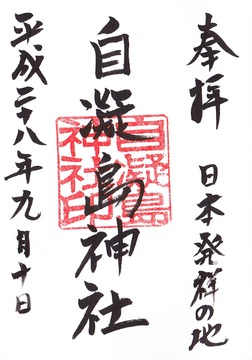 奉拝 日本発祥の地
自凝島神社
自凝島神社印
平成二十八年九月十日